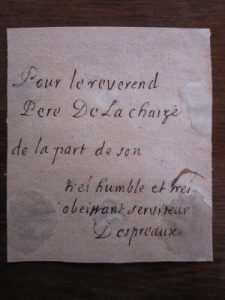 Pour le reverend
Pere De La chaizé
de la part de son
trés humble et trés
obeissant serviteur
Despreaux